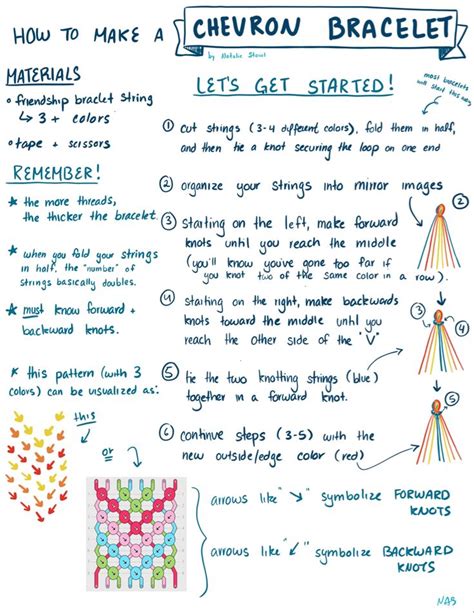 HOW TO MAKE A
CHEVRON BRACELET
MATERIALS
• friendship braclet string
↳ 3 + colors
• tape + scissors
REMEMBER!
★ the more threads,
the thicker the bracelet.
★ when you fold your strings
in half, the "number" of
strings basically doubles.
★ must know forward +
backward knots.
★ this pattern (with 3
colors) can be visualized as:
this
or
LET'S GET STARTED!
most bracelets
will start this way
① cut strings (3-4 different colors), fold them in half,
and then tie a knot securing the loop on one end
② organize your strings into mirror images
③ starting on the left, make forward
knots until you reach the middle
(you'll know you've gone too far if
you knot two of the same color in a row).
④ starting on the right, make backwards
knots toward the middle until you
reach the other side of the "V"
⑤ tie the two knotting strings (blue)
together in a forward knot.
⑥ continue steps (3-5) with the
new outside/edge color (red)
②
③
④
⑤
arrows like "↘" symbolize FORWARD
KNOTS
arrows like "↙" symbolize BACKWARD
KNOTS